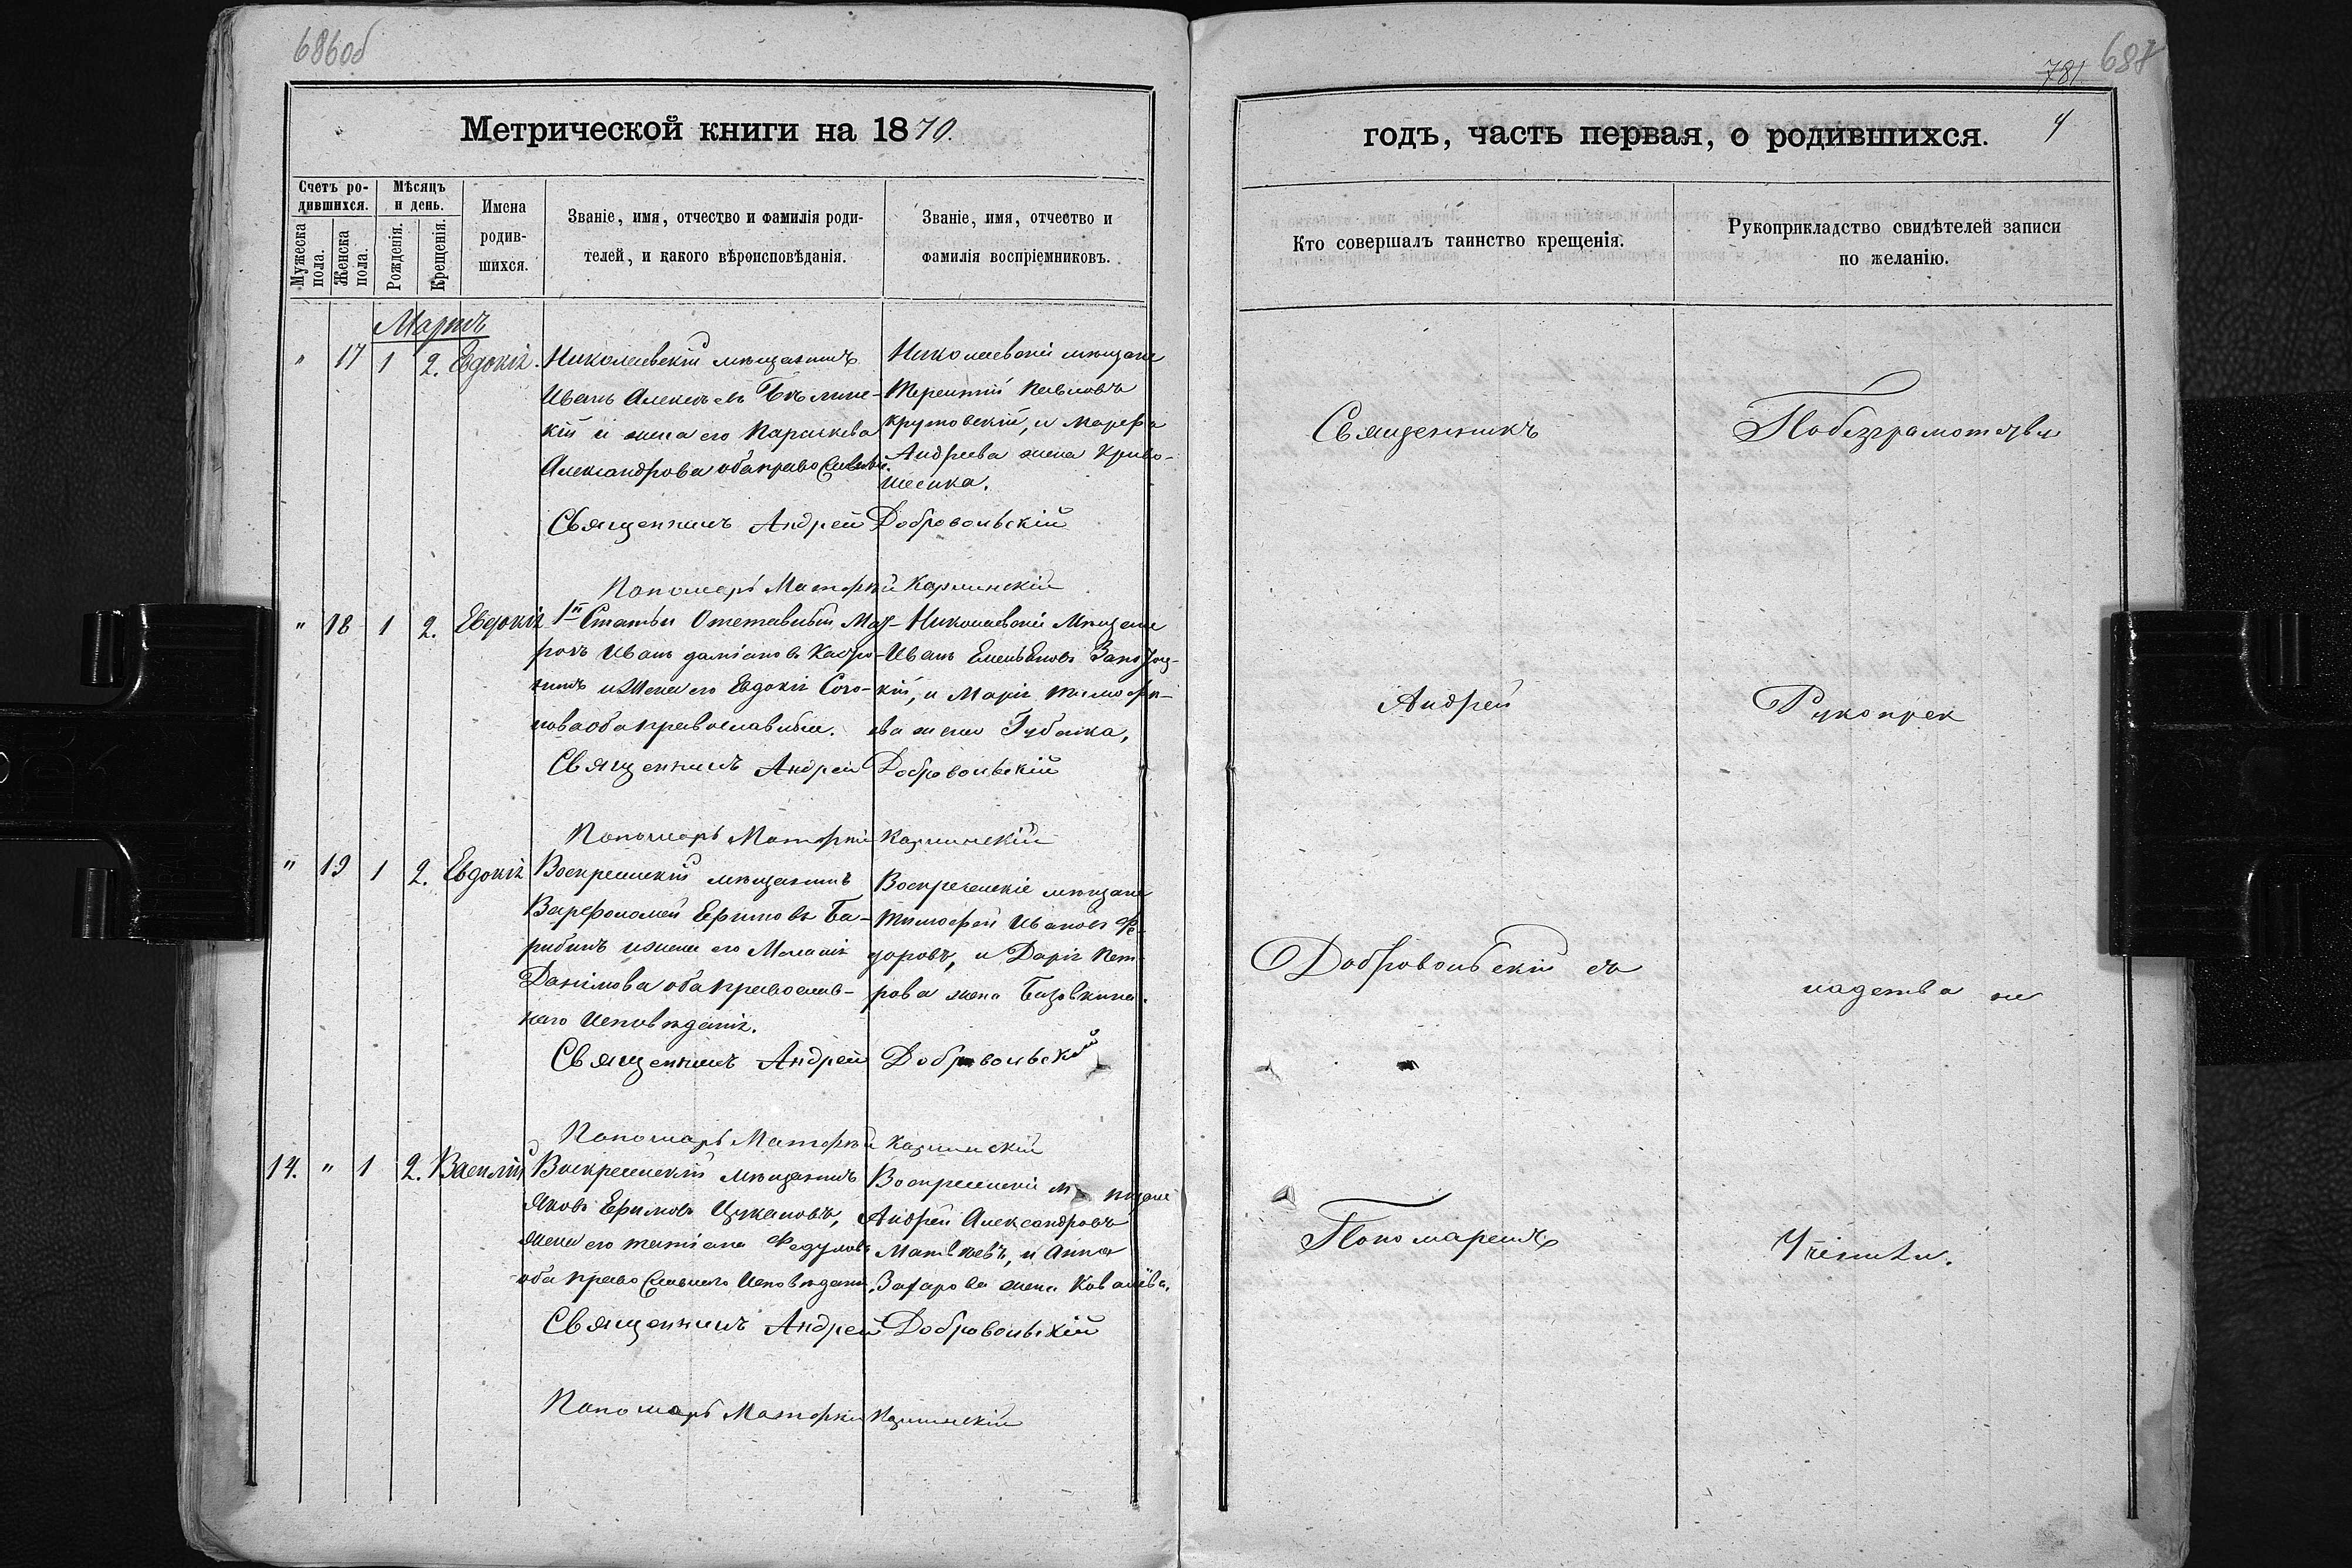 686об
Метрической книги на 1870.
Счетъ родившихся.
Мѣсяцъ и день.
Имена родившихся.
Званіе, имя, отчество и фамилія родителей, и какого вѣроисповѣданія.
Званіе, имя, отчество и фамилія воспріемниковъ.
Мужеска пола.
Женска пола.
Рожденія.
Крещенія.
Мартъ
" 17 1 2. Евдокія.
Николаевскій мѣщанинъ
Иванъ
кій и жена его Параскева
Александрова оба православн.
Николаевскіе мѣщане
Терентій Павловъ
Крутовскій, и Марфа
Андреева жена Криво-
шеенка.
Священникъ Андрей Добровольскій
Пономарь Матфей
" 18 1 2. Евдокія
1й Статьи Отставный Мат-
росъ Иванъ Даміановъ
и Жена его Евдокія
оба православные.
Николаевскіе Мѣщане
Иванъ Емельяновъ
кій, и Марія Тимофѣ-
ева жена Губенка,
Священникъ Андрей Добровольскій
Пономарь Матфей
" 19 1 2. Евдокія
Воскресенскій мѣщанинъ
Варфоломей Ефимовъ Ба-
рибинъ и жена его Меланія
Данилова оба православ-
наго Исповѣданія.
Воскресенскіе мѣщане
Тимофей Ивановъ Фе-
доровъ, и Дарія Пет-
рова жена Базовкина.
Священникъ Андрей Добровольскій
Пономарь Матфей
14. " 1 2. Василій
Воскресенскій мѣщанинъ
Яковъ Ефимовъ Цукановъ,
жена его Татіана Федулова
оба православнаго Исповѣданія.
Воскресенскіе мѣщане
Андрей Александровъ
Матвѣевъ, и Анна
Захарова жена Ковалёва.
Священникъ Андрей Добровольскій
Пономарь Матфей
781. 687
годъ, часть первая, о родившихся. 4
Кто совершалъ таинство крещенія.
Рукоприкладство свидѣтелей записи по желанію.
Священникъ
Андрей
Добровольскій съ
Пономаремъ
По безграмотству
Рукопрек
ладства не
Учинили.